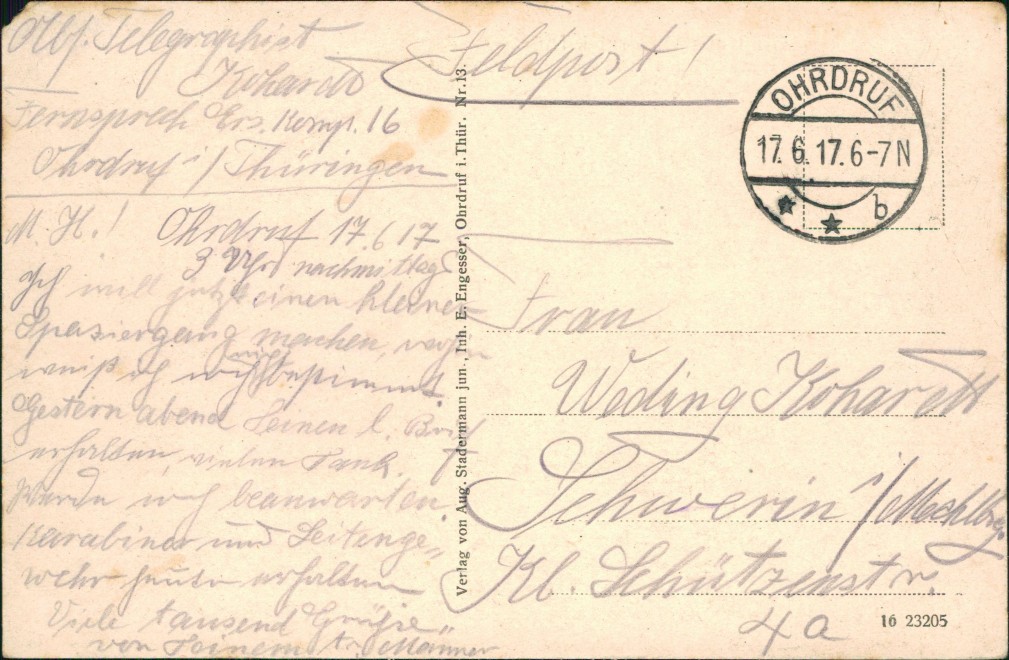 Telegraphist
Kohardt
Fernsprech Ers. Komp. 16
Ohrdruf i/Thüringen
M. H.! Ohrdruf 17.6.17
3 Uhr nachmittag
Ich will jetzt einen kleinen
Spaziergang machen,
weiß ich nicht bestimmt.
Gestern abend Deinen l. Brief
erhalten, vielen Dank.
Werde ihn beantworten.
Karabiner und Seitenge„
wehr heute erhalten
Viele tausend Grüße
von Deinem tr. Männe
Verlag von Aug. Stadermann jun., Inh. E. Engesser, Ohrdruf i. Thür. Nr. 13.
Feldpost!
OHRDRUF
17. 6. 17. 6-7N
b
Frau
Weding Kohardt
Schwerin i/Mecklbg.
Kl. Schützenstr.
4a
16 23205